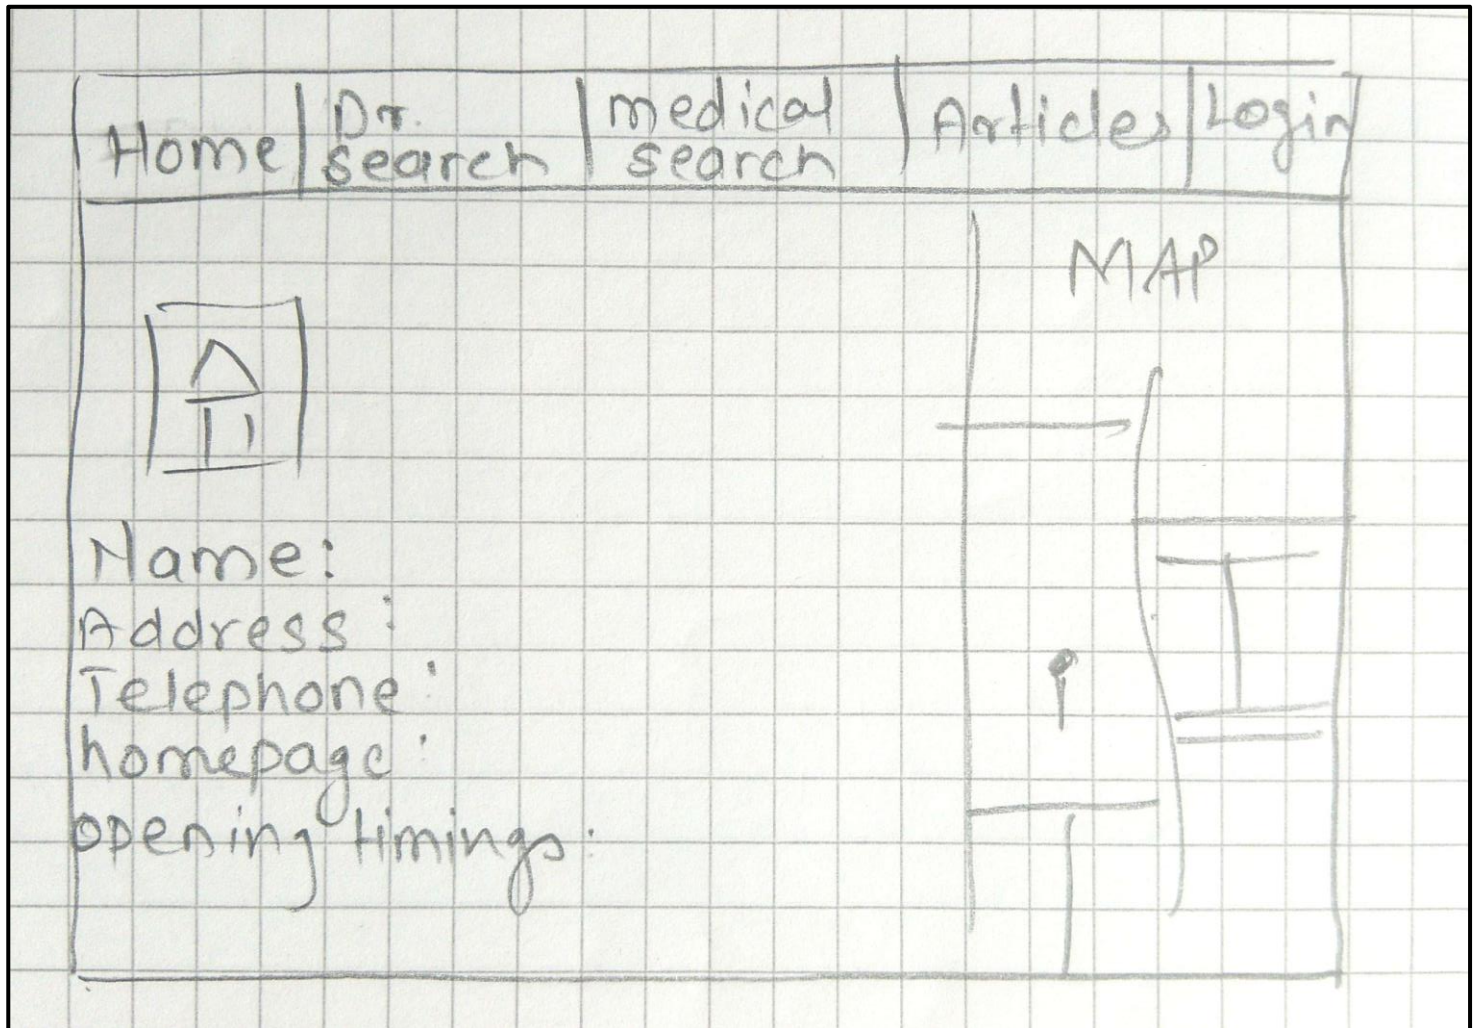 Home
Dr.
search
medical
search
Articles
Login
MAP
Name:
Address:
Telephone:
homepage:
opening timings: